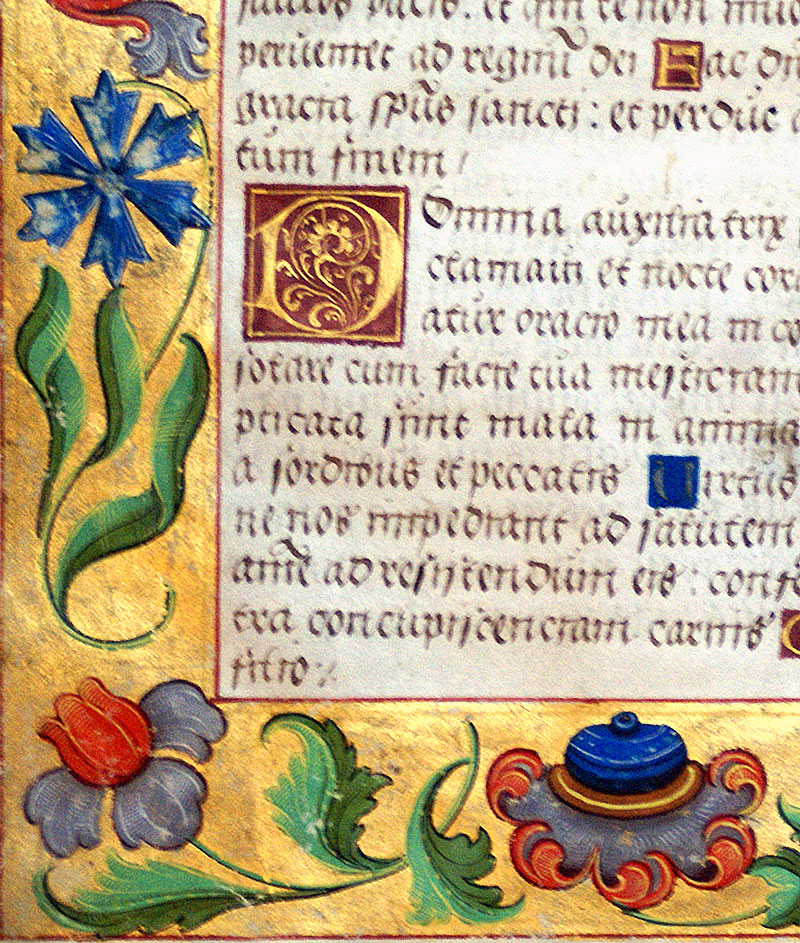 peruenier ad regnū dei Hac
gracia spūs sancti : et perduc
tum finem
Domina auxiliatrix
ctamaui et nocte cor
atur oracio mea in co
iotare cum facie tua
pticata sunt mala in anima
a sordibus et peccatis Uirtus
ne nos impediant ad salutem
amē ad resistendum eis : conf
tra concupiscenciam carnis
filio